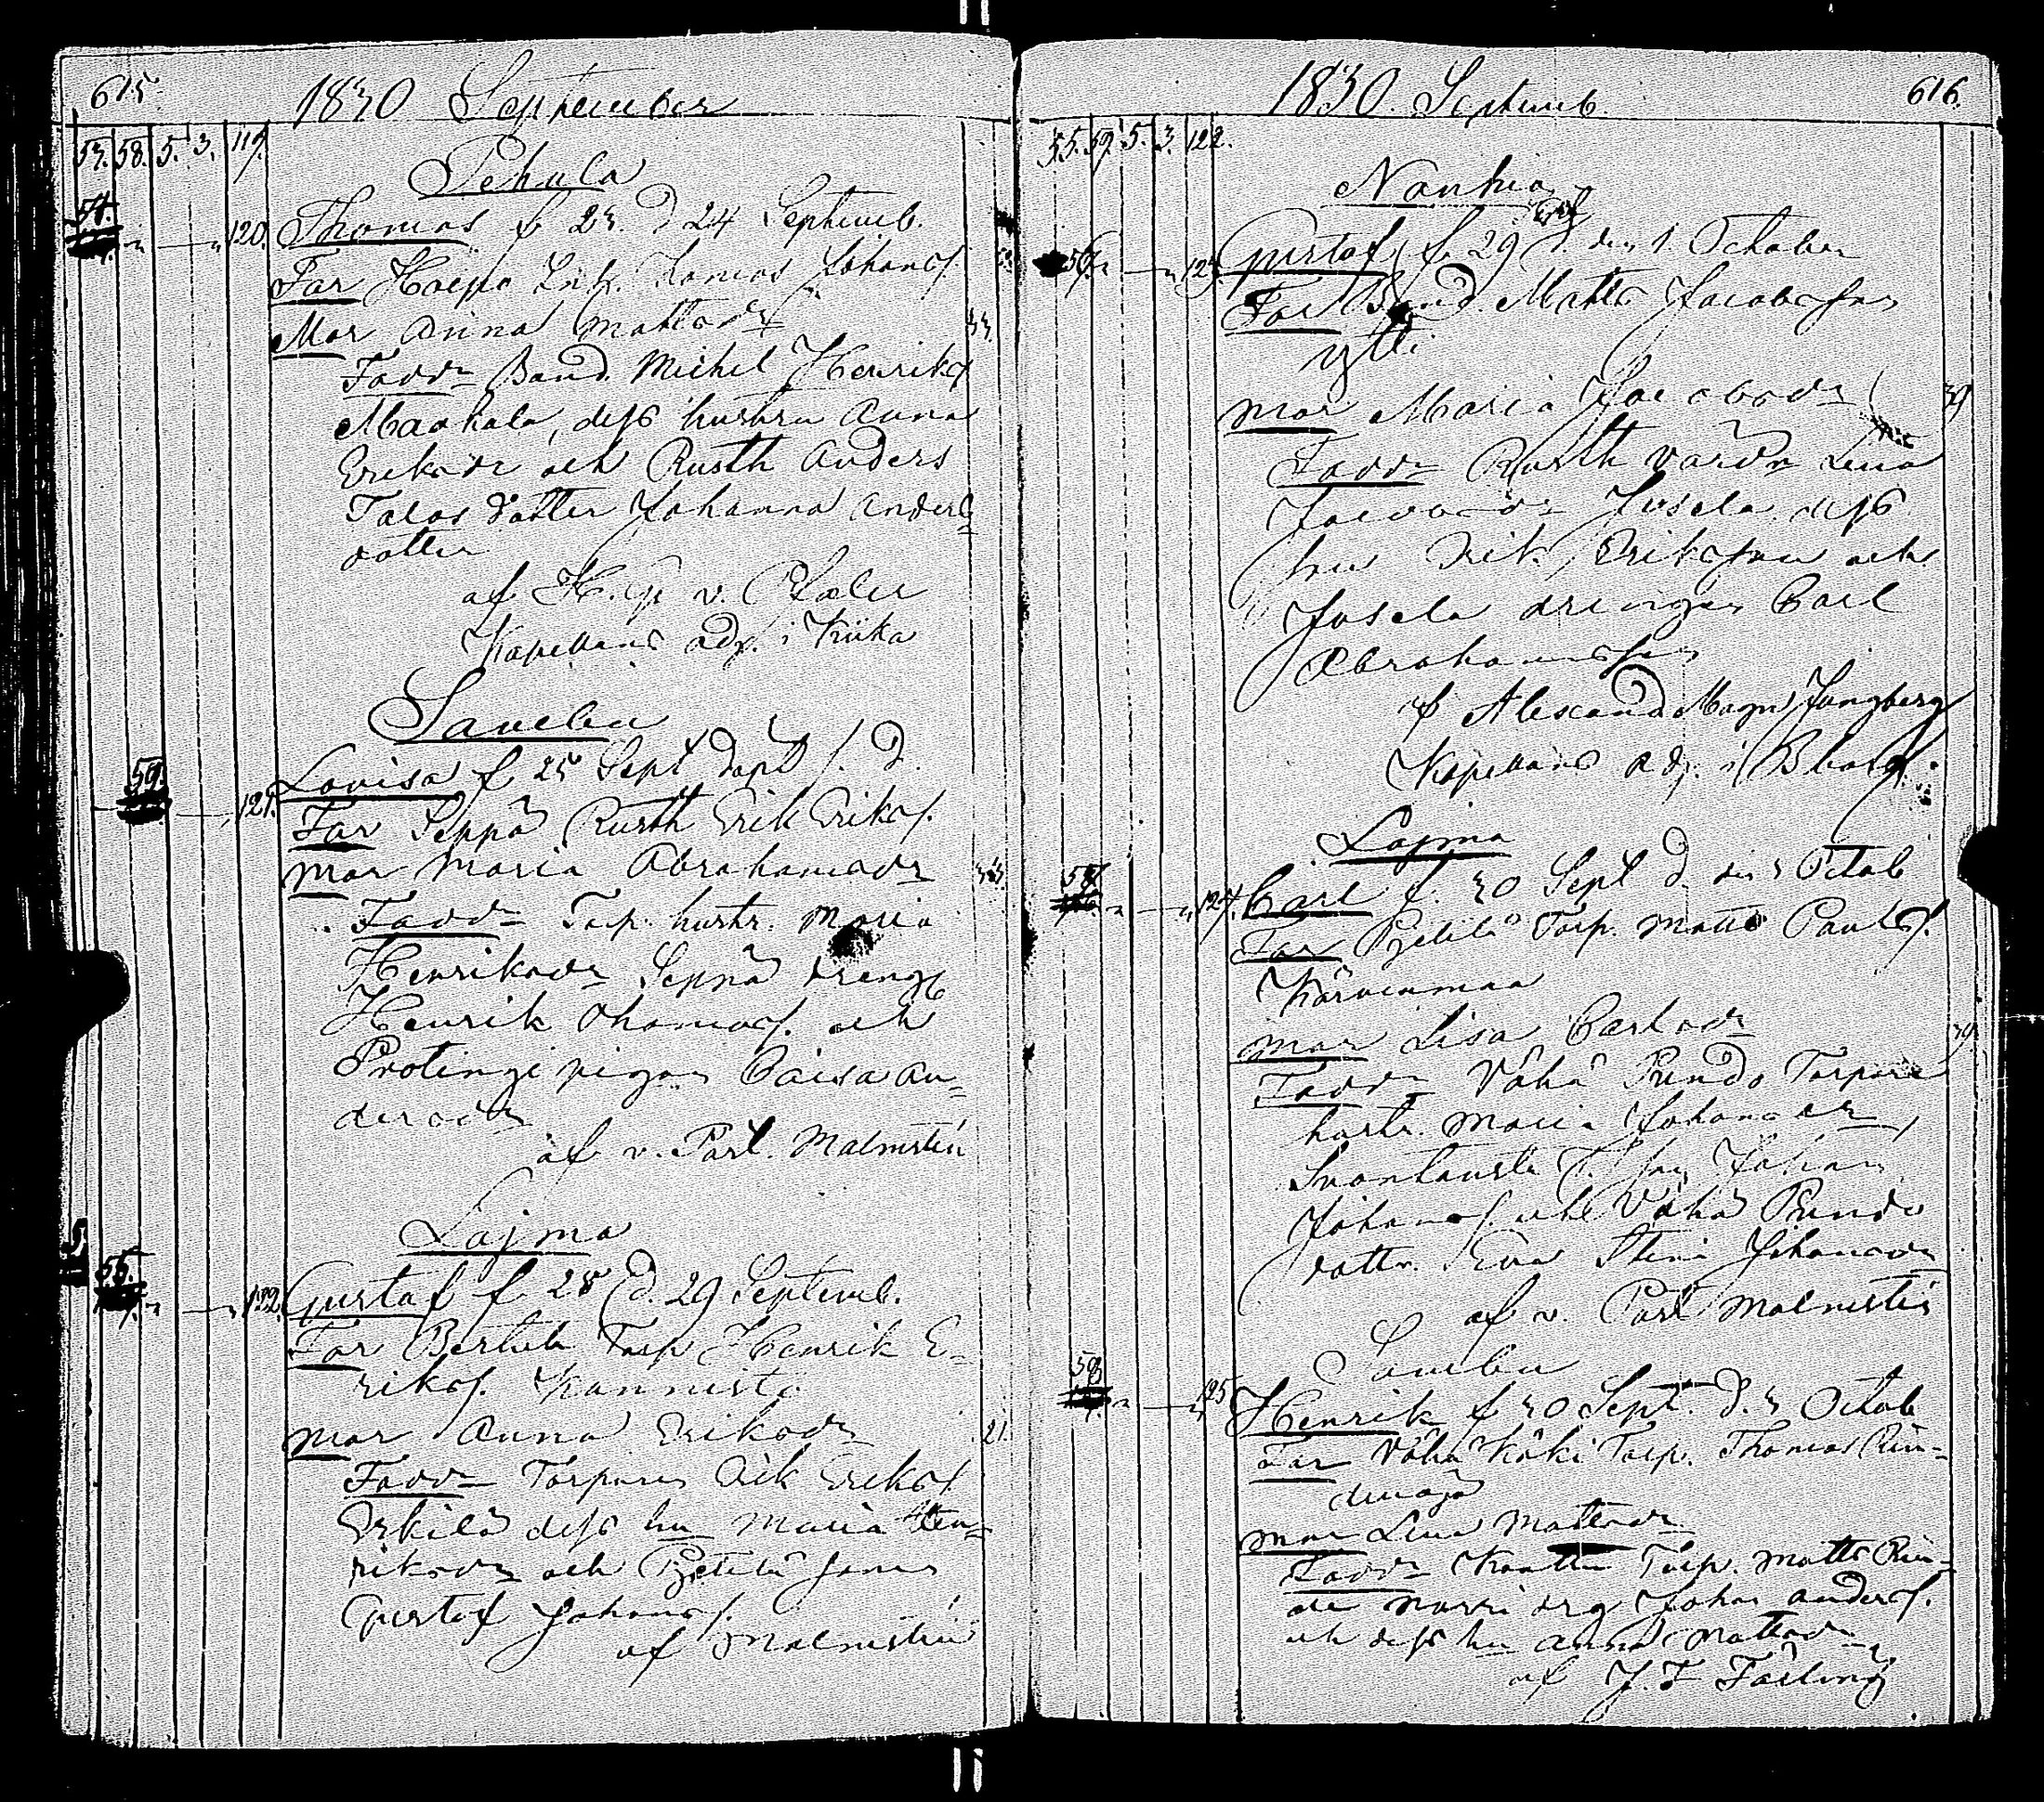 615.
1830 September
57. 58. 5. 3. 119.
Pehula
54.
120. Thomas f 23. d 24 Septemb.
Far Inh. Tomas Johans.
Mar Anna Mattsdr
33.
Faddr Bond. Michel Henriks.
Maakala, dess hustru Anna
Eriksdr och Rusth Anders
Talas dotter Johanna Anders
dotter
af H. G. v.
Kapellans adj. i Kiika
Sauelu
59.
121. Lovisa f 25 Sept döpt s. d.
Far Seppä Rusth Erik Eriks.
Mar Maria Abrahamsdr
33.
Faddr Torp. hustr. Maria
Henriksdr Seppä dreng
Henrik Thomas. och
Protingi pigan Caisa An-
dersdr
af v. Past. Malmstén
Lajma
56.
122. Gustaf f 28 d. 29 Septemb.
Far Torp Henrik E-
riks. Kannisto
Mar Anna Eriksdr
21.
Faddr Torparen Erik Eriks.
Erkilä dess hu Maria Hen-
riksdr och sonen
Gustaf Johans.
af Malmstén
1830. Septemb.
616.
55. 59. 5. 3. 122.
Nankia
123. Gustaf f. 29 d. den 1. October
Far Bond. Matts Jacobsson
Ytti
Mar Maria Jacobsdr
39
Faddr Rusth värdn Lena
Jacobsdr Jusela dess
son Erik Eriksson och
Jusela drengen Carl
Abrahamsson
af Alexand. Magn. Ljungberg
Kapellans adj. i
Lajma
58.
124. Carl f. 30 Sept d. den 3 Octob
Far Torp. Matts Pauls.
Kärvenmaa
Mar Lisa Carlsdr
39.
Faddr Vähä Pundo Torpare
hustr. Maria Johansdr,
son Johan
Johans. och Vähä Pundo
dottr. Eva Stina Johansdr
af v. Past Malmstén
Sauelu
58
125. Henrik f 30 Sept. d. 3 Octob
Far Vähä Köki Torp. Thomas Rin-
Mar Lena Mattsdr
Faddr Torp. Matts
drg Johan Anders.
och dess hu Anna Mattsdr
af J. F. Färling